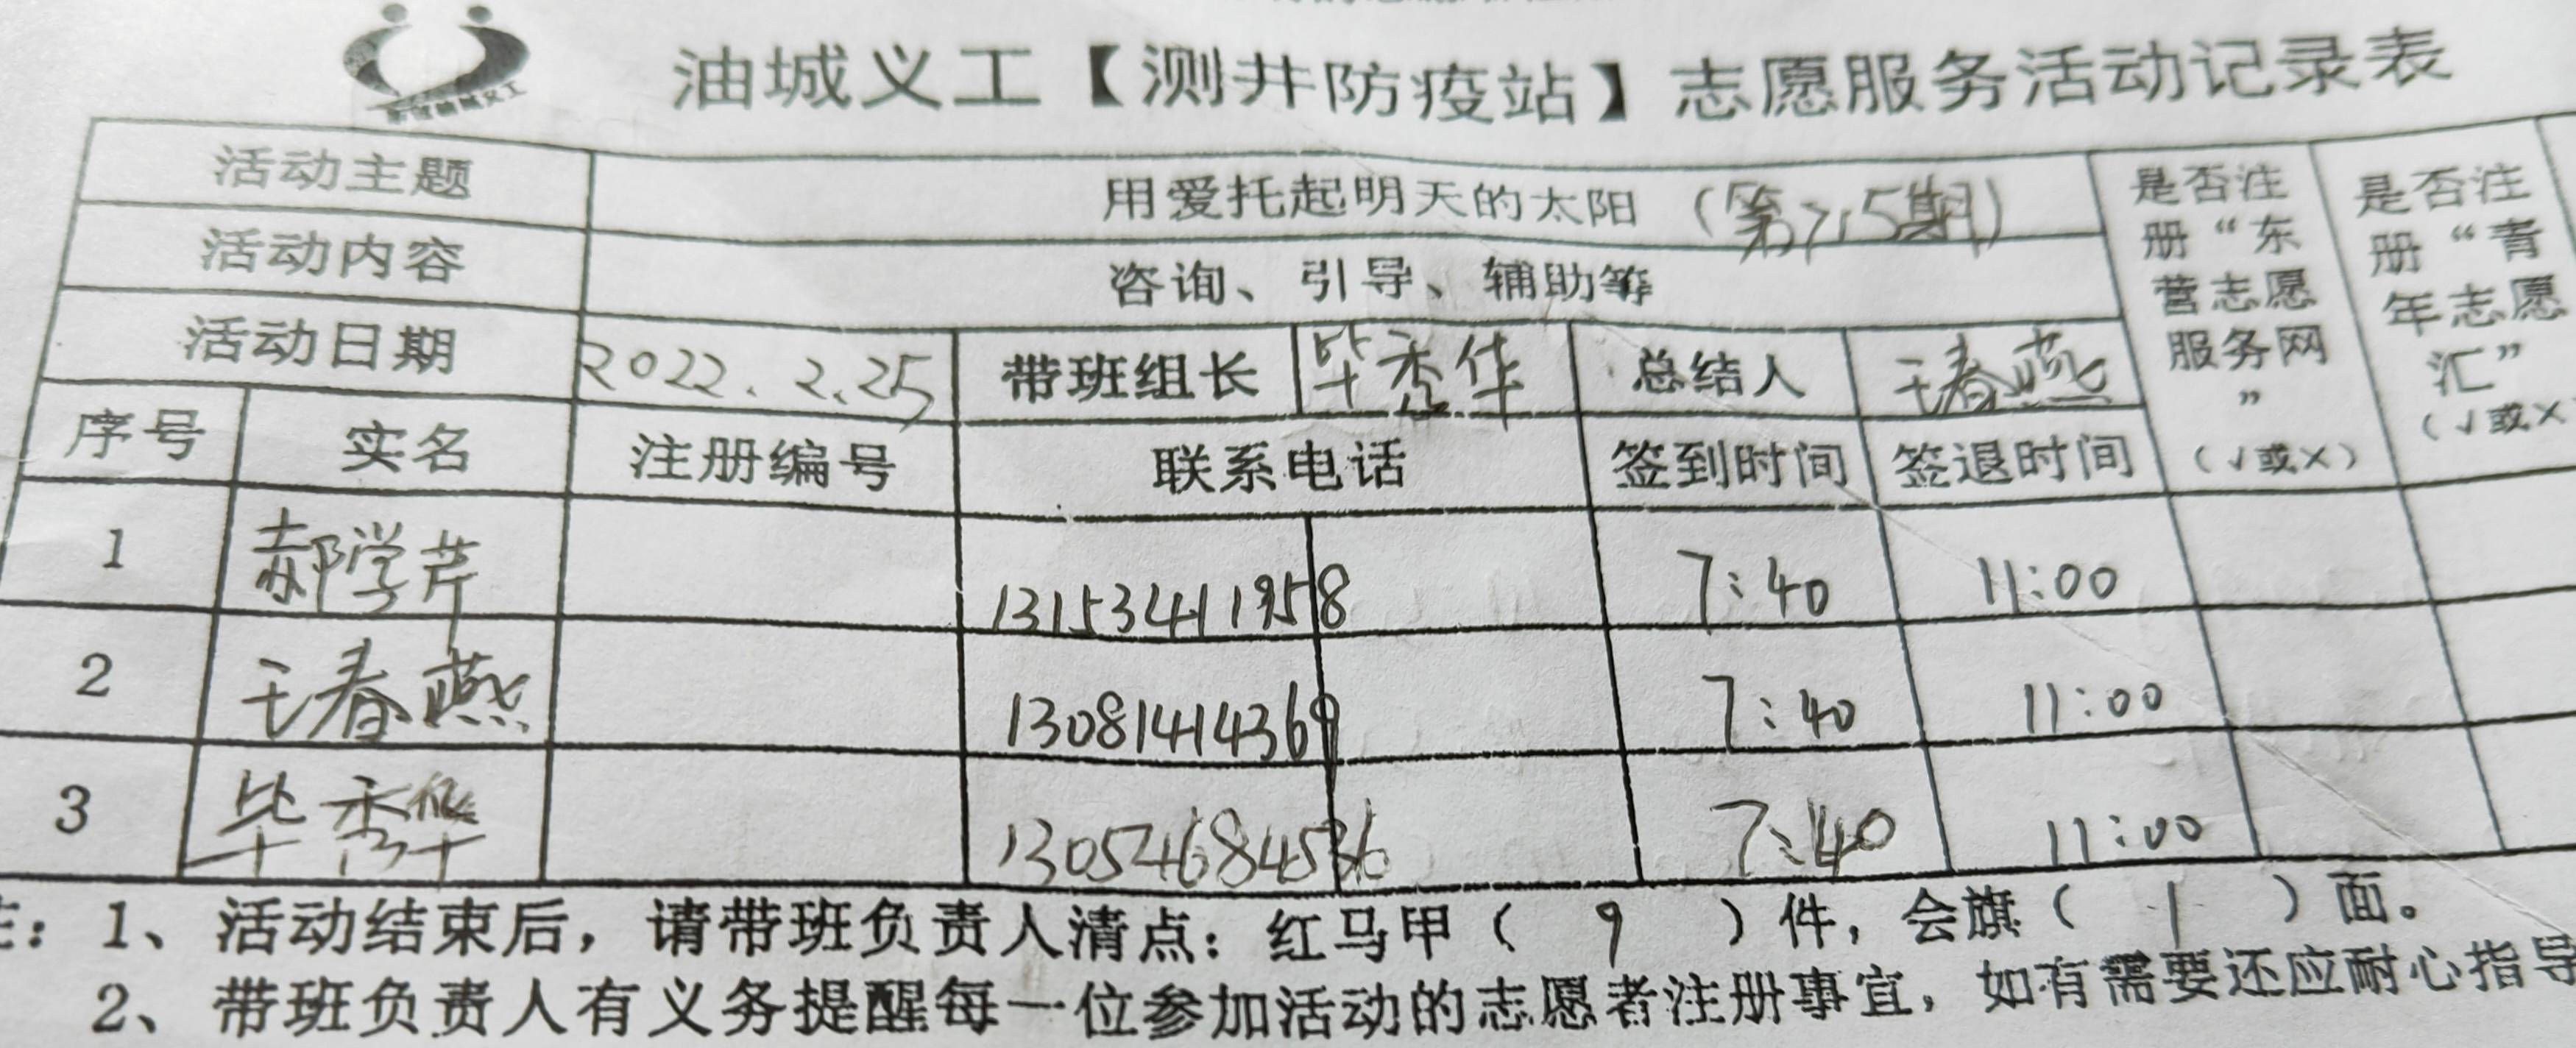 油城义工【测井防疫站】志愿服务活动记录表
活动主题 用爱托起明天的太阳（第715期）
活动内容 咨询、引导、辅助等
活动日期 2022.2.25 带班组长 毕秀华 总结人 王春燕
是否注册“东营志愿服务网”（√或×）
是否注册“青年志愿汇”（√或×
序号 实名 注册编号 联系电话 签到时间 签退时间
1 郝学芹 13153411958 7:40 11:00
2 王春燕 13081414369 7:40 11:00
3 毕秀华 13054684536 7:40 11:00
：1、活动结束后，请带班负责人清点：红马甲（ 9 ）件，会旗（ 1 ）面。
2、带班负责人有义务提醒每一位参加活动的志愿者注册事宜，如有需要还应耐心指导